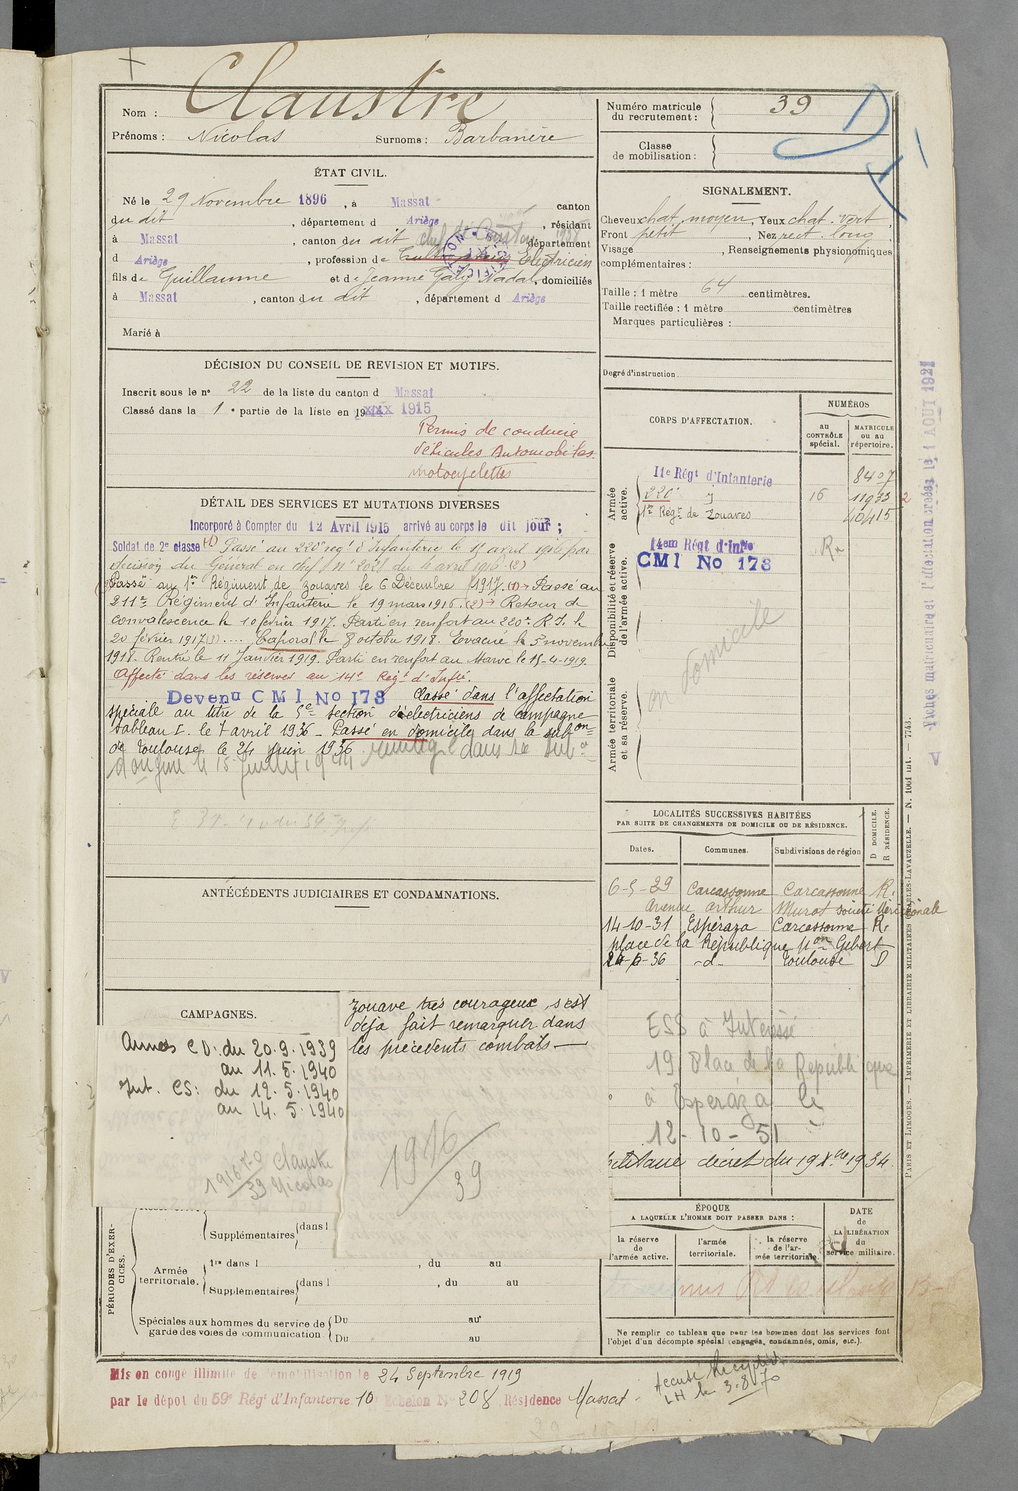 Nom : Claustre
Prénoms : Nicolas Surnoms : Barbanère
ÉTAT CIVIL.
Né le 29 Novembre 1896, à Massat canton
du dit, département d Ariège, résidant
à Massat, canton du dit département
d Ariège, profession de Electricien
fils de Guillaume et de Jeanne Galy Nadal, domiciliés
à Massat, canton du dit, département d Ariège
Marié à
DÉCISION DU CONSEIL DE REVISION ET MOTIFS.
Inscrit sous le n° 22 de la liste du canton d Massat
Classé dans la 1e partie de la liste en 1915
Permis de conduire
véhicules Automobiles
motocyclettes
DÉTAIL DES SERVICES ET MUTATIONS DIVERSES
Incorporé à Compter du 12 Avril 1915 arrivé au corps le dit jour ;
Soldat de 2e classe (1) Passé au 220e regt d'Infanterie le 15 avril 1916 par
décision du Général en chef N° 2021 du 6 avril 1916 (2)
Passé au 1er Régiment de Zouaves le 6 Décembre 1917. (1) → Passé au
211e Régiment d'Infanterie le 19 mars 1916. (2) → Retour de
convalescence le 10 février 1917. Parti en renfort au 220e R.I. le
20 février 1917 (3) .... Caporal le 8 octobre 1918. Evacué le 5 novembre
1918. Rentré le 11 Janvier 1919. Parti en renfort au Maroc le 15-4-1919.
Affecté dans les réserves au 14e Regt d'Infie.
Devenu CMI No 173 Classé dans l'affectation
spéciale au titre de la 5e section d'électriciens de campagne
tableau I. le 7 avril 1936 - Passé en domicile dans la subon
de Toulouse le 24 juin 1936
ANTÉCÉDENTS JUDICIAIRES ET CONDAMNATIONS.
CAMPAGNES.
Armées CD: du 20.9.1939
au 11.5.1940
Int. CS: du 12.5.1940
au 14.5.1940
1916 T.O
39 Claustre
Nicolas
Zouave très courageux, s'est
déjà fait remarquer dans
les précédents combats —
1916/39
PÉRIODES D'EXERCICES.
Supplémentaires dans l
Armée territoriale. 1re dans l , du au
Supplémentaires dans l , du au
Spéciales aux hommes du service de garde des voies de communication Du au
Du au
Mis en congé illimité de démobilisation le 24 Septembre 1919
par le dépôt du 59e Régt d'Infanterie 10 Echelon N° 208 Résidence Massat.
Numéro matricule du recrutement : 39
Classe de mobilisation :
SIGNALEMENT.
Cheveux chat. moyen, Yeux chat. vert
Front petit, Nez rect. long
Visage , Renseignements physionomiques
complémentaires :
Taille : 1 mètre 64 centimètres.
Taille rectifiée : 1 mètre centimètres
Marques particulières :
Degré d'instruction
CORPS D'AFFECTATION.
NUMÉROS
AU CONTRÔLE spécial.
MATRICULE ou au répertoire.
Armée active.
11e Régt d'Infanterie 8407
220e 16 11975
1er Régt de Zouaves 40415
Disponibilité et réserve de l'armée active.
14em Régt d'Infie
CMI No 173
Armée territoriale et sa réserve.
en domicile
Fiches matriculaire et l'affectation créées le 1 AOUT 1921
LOCALITÉS SUCCESSIVES HABITÉES
PAR SUITE DE CHANGEMENTS DE DOMICILE OU DE RÉSIDENCE.
Dates. Communes. Subdivisions de région D DOMICILE. R RÉSIDENCE.
6-5-29 Carcassonne Carcassonne R.
Avenue Arthur Murot société Méridionale
14-10-31 Espéraza Carcassonne R.
place de la République Mon Gibert
24-6-36 -d- Toulouse D
ESS à Intéressé
19 Place de la République
à Espéraza le
12-10-51
décret du 19 Xbre 1934.
ÉPOQUE
A LAQUELLE L'HOMME DOIT PASSER DANS :
la réserve de l'armée active.
l'armée territoriale.
la réserve de l'armée territoriale.
DATE de LA LIBÉRATION du service militaire.
Ne remplir ce tableau que pour les hommes dont les services font
l'objet d'un décompte spécial (engagés, condamnés, omis, etc.).
Accusé réception
LH le 3.8.70
PARIS ET LIMOGES. — IMPRIMERIE ET LIBRAIRIE MILITAIRES CHARLES-LAVAUZELLE. — N. 1001 int. — 7743.